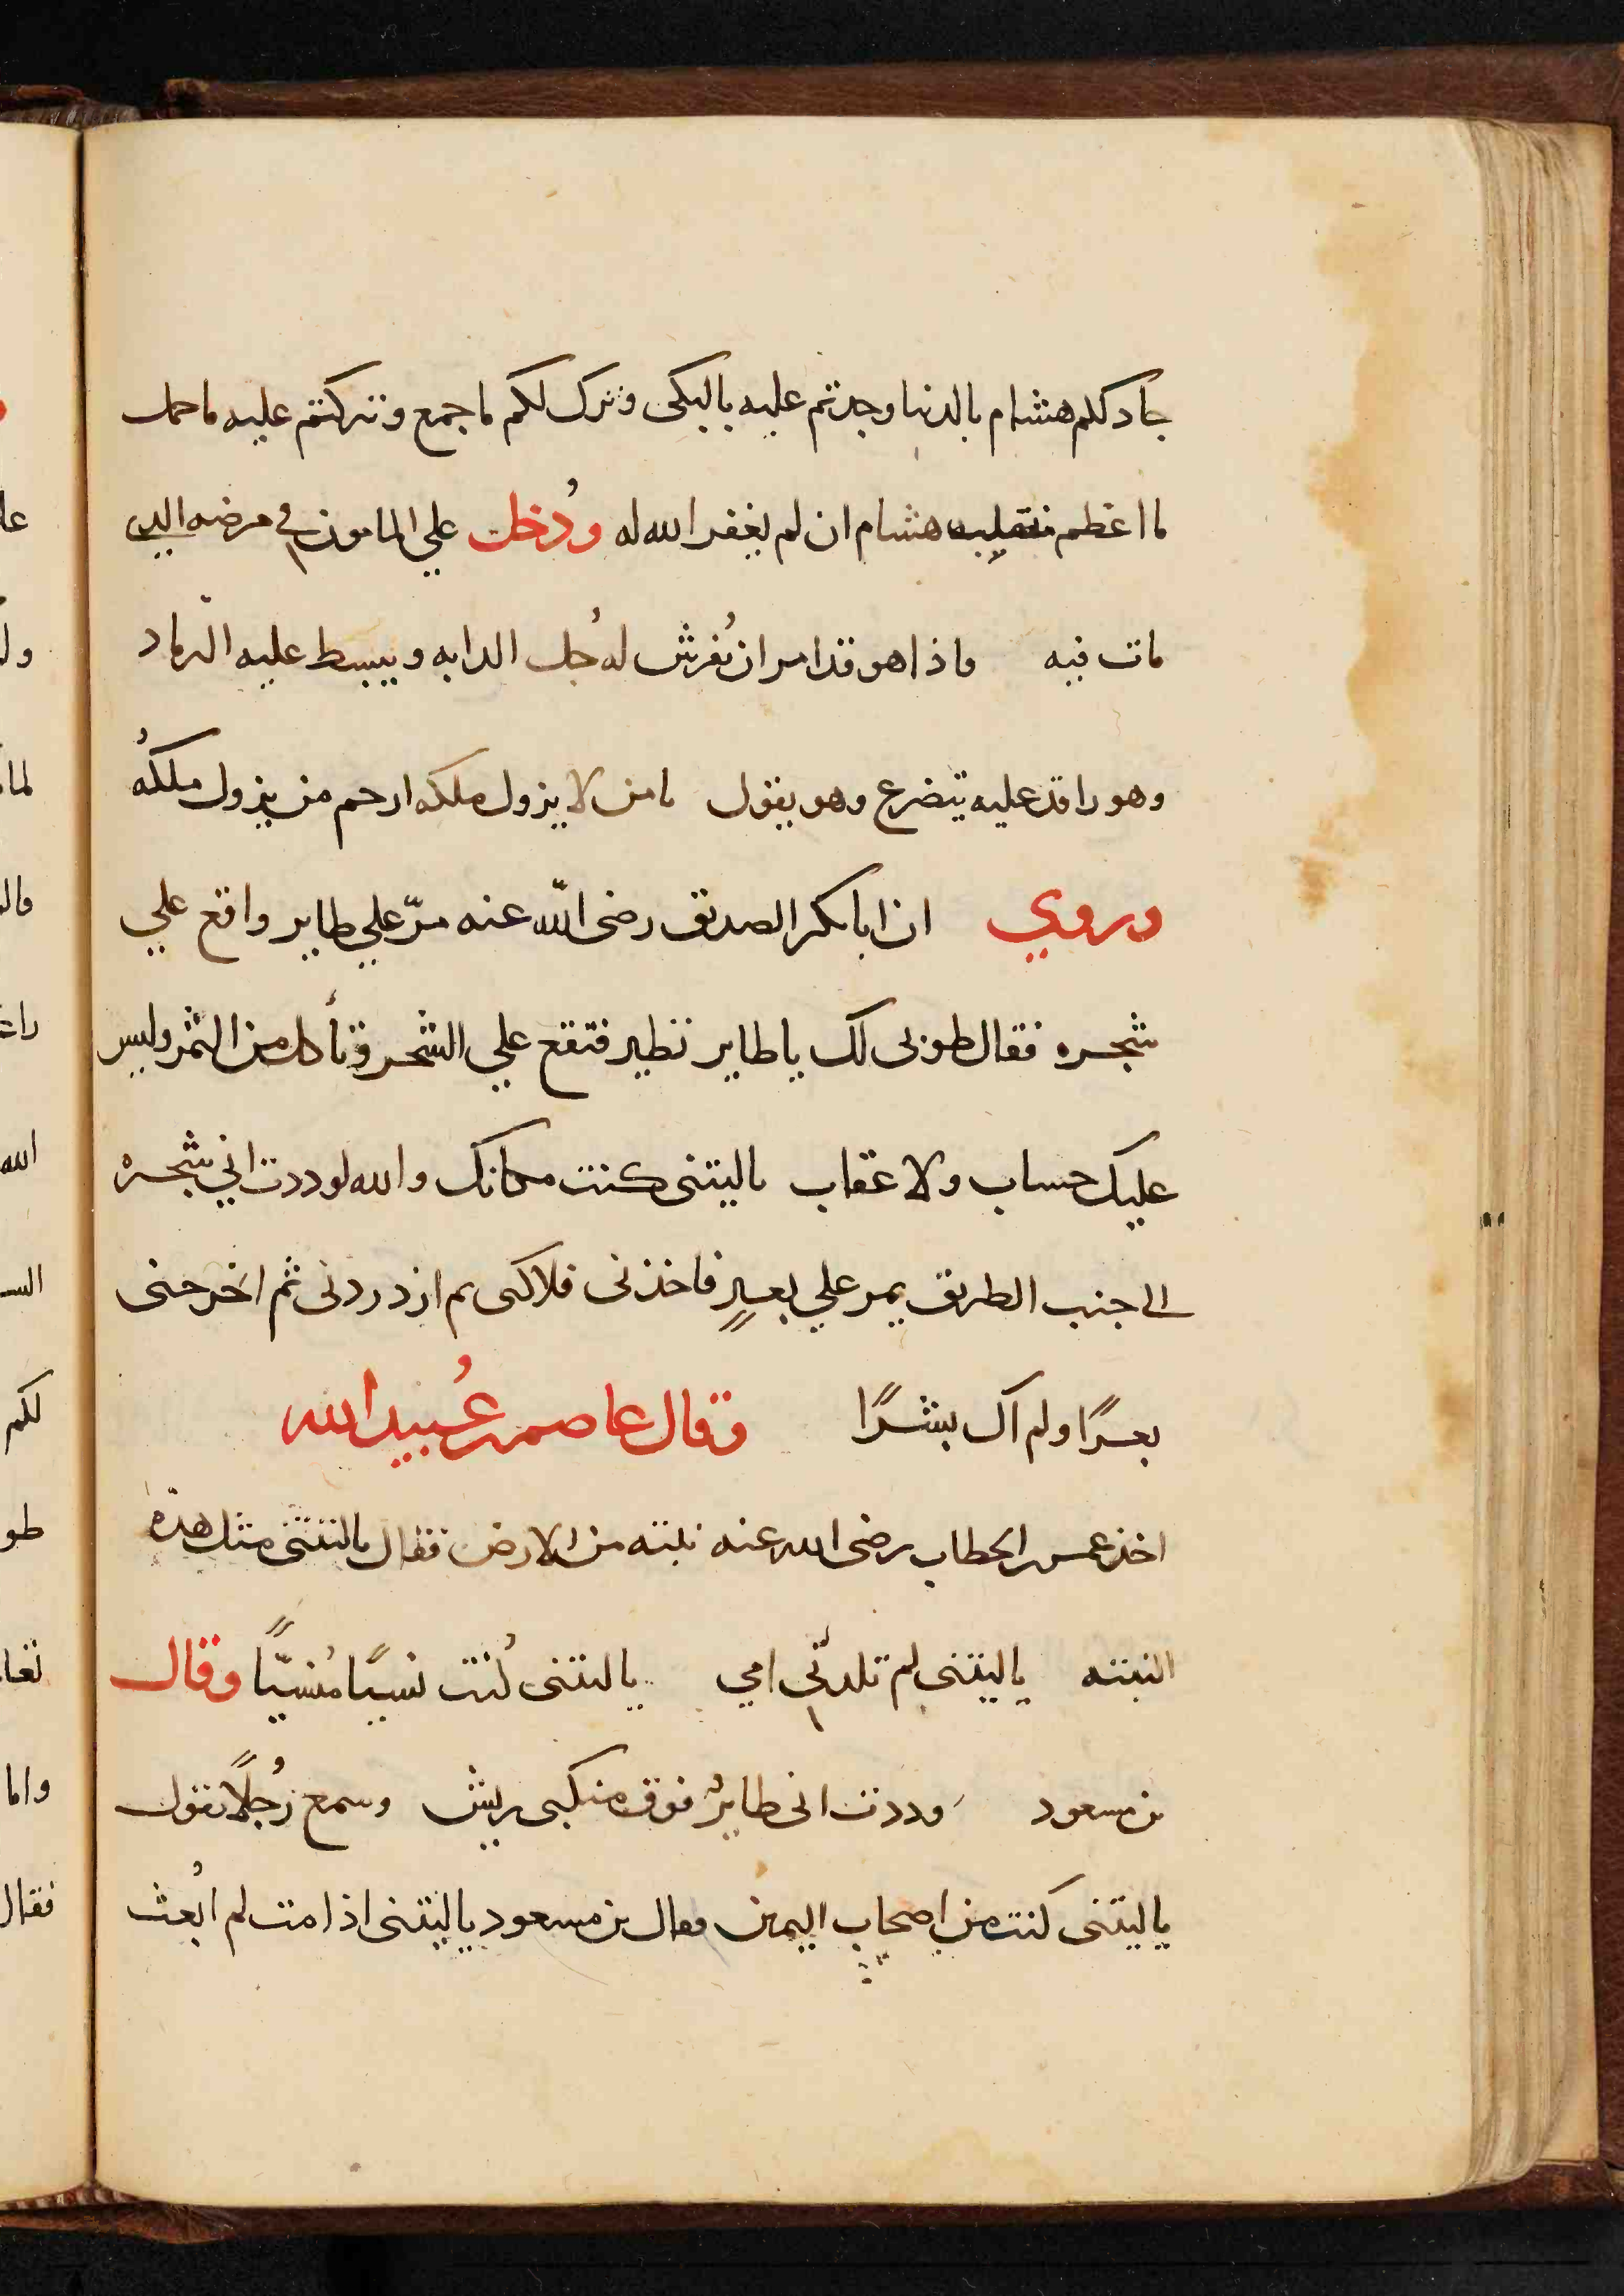 جاد لكم هشام بالدنيا وجدتم عليه بالبكى وترك لكم ما جمع وتركتم عليه ما حمل
ما اعظم منقلب هشام ان لم يغفر الله له ودُخل علي المامون في مرضه الذي
مات فيه واذا هو قد امر ان يُفرش له جُل الدابه ويبسط عليه الرماد
وهو راقد عليه يتضرع وهو يقول يا من لا يزول ملكه ارحم من يزول ملكُه
وروي ان ابا بكر الصديق رضى الله عنه مرّ علي طاير واقع علي
شجره فقال طوبى لك يا طاير تطير فتقع علي الشجر وتأكل من الثمر وليس
عليك حساب ولا عقاب يا ليتنى كنت مكانك والله لوددت اني شجره
الى جنب الطريق يمر علي بعيرٍ فاخذنى فلاكنى ثم ازدردنى ثم اخرجنى
بعرًا ولم اك بشرًا وقال عاصم بن عُبيد الله
اخذ عمر بن الخطاب رضى الله عنه تبنه من الارض فقال يا ليتنى مثل هذه
التبنه يا ليتنى لم تلدنّي امي يا ليتنى كُنت نسيًا مُنسيًّا وقال
بن مسعود وددت انى طايرُ فوق منكبى ريش وسمع رُجلًا يقول
يا ليتنى كنت من اصحاب اليمين فقال بن مسعود يا ليتنى اذا مت لم ابُعث
علا
لما
الله
لكم
طو
واما
فقال